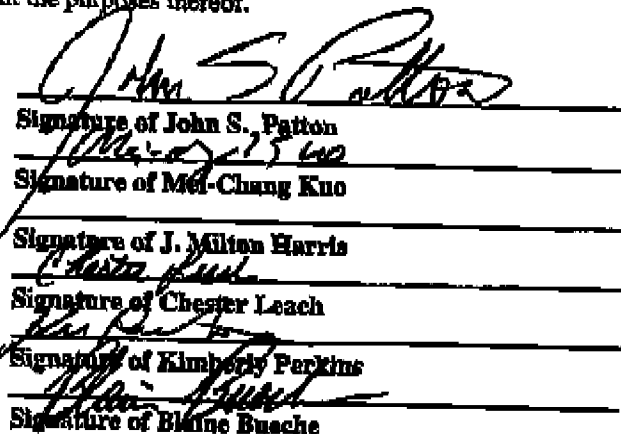 the purposes thereof.
John S Patton
Signature of John S. Patton
Mei-Chang Kuo
Signature of Mei-Chang Kuo
Signature of J. Milton Harris
Chester Leach
Signature of Chester Leach
Signature of Kimberly Perkins
Blaine Busche
Signature of Blaine Busche